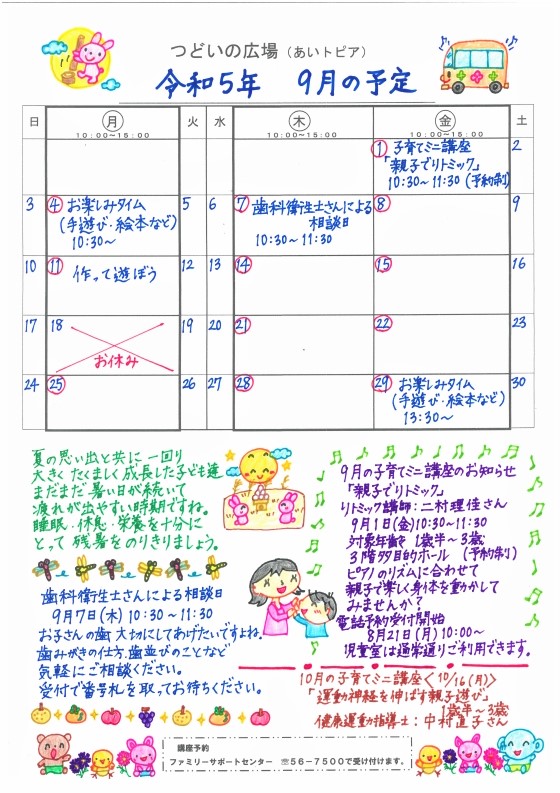 つどいの広場（あいトピア）
令和5年　9月の予定
日 月 火 水 木 金 土
10:00～15:00 10:00～15:00 10:00～15:00
1 子育てミニ講座 2
「親子でリトミック」
10:30～11:30 (予約制)
3 4 お楽しみタイム 5 6 7 歯科衛生士さんによる 8 9
(手遊び・絵本など) 相談日
10:30～ 10:30～11:30
10 11 作って遊ぼう 12 13 14 15 16
17 18 19 20 21 22 23
お休み
24 25 26 27 28 29 お楽しみタイム 30
(手遊び・絵本など)
13:30～
夏の思い出と共に 一回り
大きく たくましく 成長した子ども達
まだまだ 暑い日が続いて
疲れが出やすい時期ですね。
睡眠・休息・栄養を十分に
とって 残暑をのりきりましょう。
歯科衛生士さんによる相談日
9月7日(木) 10:30～11:30
お子さんの歯、大切にしてあげたいですよね。
歯みがきの仕方、歯並びのことなど
気軽にご相談ください。
受付で番号札を取ってお待ちください。
9月の子育てミニ講座のお知らせ
「親子でリトミック」
リトミック講師：二村理佳さん
9月1日(金)10:30～11:30
対象年齢 1歳半～3歳
3階多目的ホール (予約制)
ピアノのリズムに合わせて
親子で楽しく身体を動かして
みませんか？
電話予約受付開始
8月21日(月) 10:00～
児童室は通常通りご利用できます。
10月の子育てミニ講座＜10/16(月)＞
「運動神経を伸ばす親子遊び」
1歳半～3歳
健康運動指導士：中村直子さん
講座予約
ファミリーサポートセンター ☏56-7500で受け付けます。